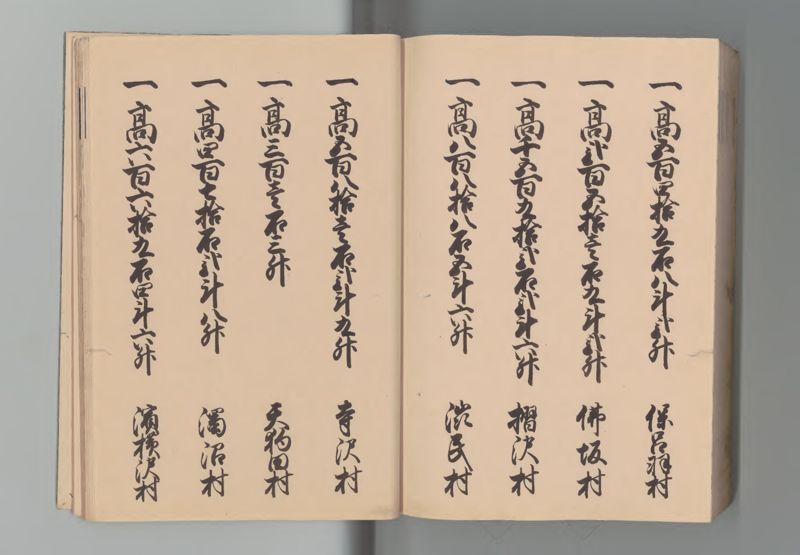 一高五百四拾九石八斗弐升 保呂羽村
一高弐百五拾壱石九斗弐升 佛坂村
一高千五百九拾弐石弐斗六升 摺沢村
一高八百八拾八石五斗六升 渋民村
一高五百八拾壱石弐斗九升 寺沢村
一高三百壱石三升 天狗田村
一高四百七拾石弐斗八升 濁沼村
一高六百六拾九石四斗六升 濱横沢村